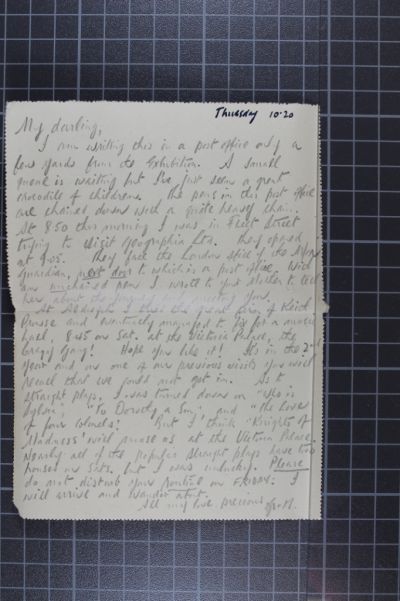 Thursday 10.20
My darling,
I am writing this in a post office only a
few yards from the Exhibition. A small
queue is waiting but I've just seen a great
crocodile of children. The pens in this post office
are chained down with a quite heavy chain.
At 8.50 this morning I was in Fleet Street
trying to visit Geographia Ltd. They opened
at 9.05. They face the London office of the
Guardian, next door to which is a post office. With
an unchained pen I wrote to your
her about the meeting you.
At I the great firm of Keith
Prowse and eventually managed to fix for a musical
, 8.45 on Sat. at the Victoria Palace, the
Crazy Gang! Hope you like it! It's in the 2nd
year and on one of our previous visits you will
recall that we could not get in. As to
straight plays, I was turned down on "Who is
Sylvia", "To Dorothy a Son", and "The Love
of Four Colonels". But I think "Knights of
Madness" will amuse us at the Victoria Palace.
Nearly all of the popular straight plays have two
houses on Sats. but I was unlucky. Please
do not disturb your routine on FRIDAY. I
will arrive and wander about.
All my love, precious